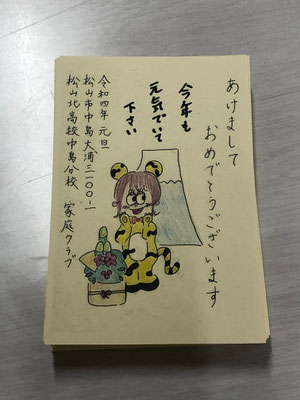 あけまして
おめでとうございます
今年も
元気でいて
下さい
令和四年 元旦
松山市中島大浦三一〇〇-一
松山北高校中島分校 家庭クラブ